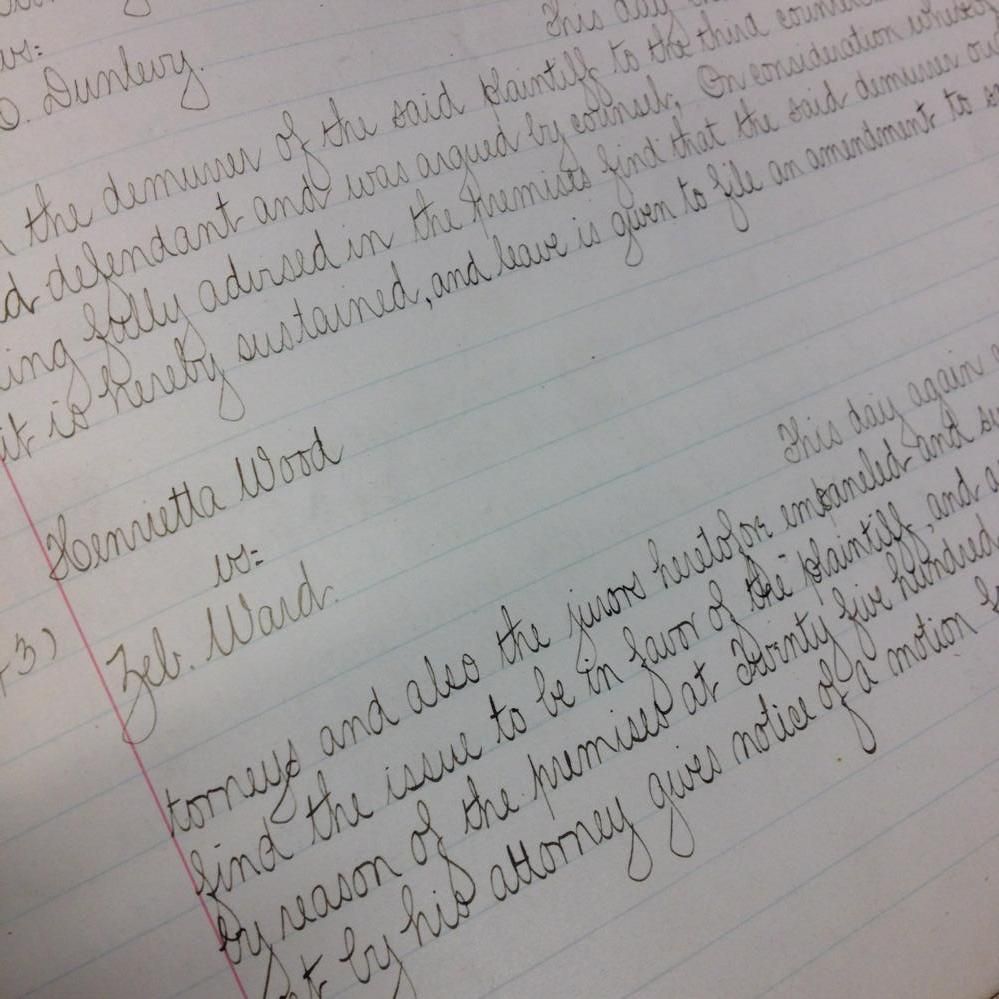 vs:
O. Dunlevy.
This day
the demurrer of the said plaintiff to the third
defendant and was argued by counsel, On consideration
fully advised in the premises find that the said demurrer
it is hereby sustained, and leave is given to file an amendment to
Henrietta Wood
vs:
Zeb. Ward.
This day again
torneys and also the jurors heretofore empaneled and
find the issue to be in favor of the plaintiff, and
by reason of the premises at Twenty five hundred
by his attorney gives notice of a motion